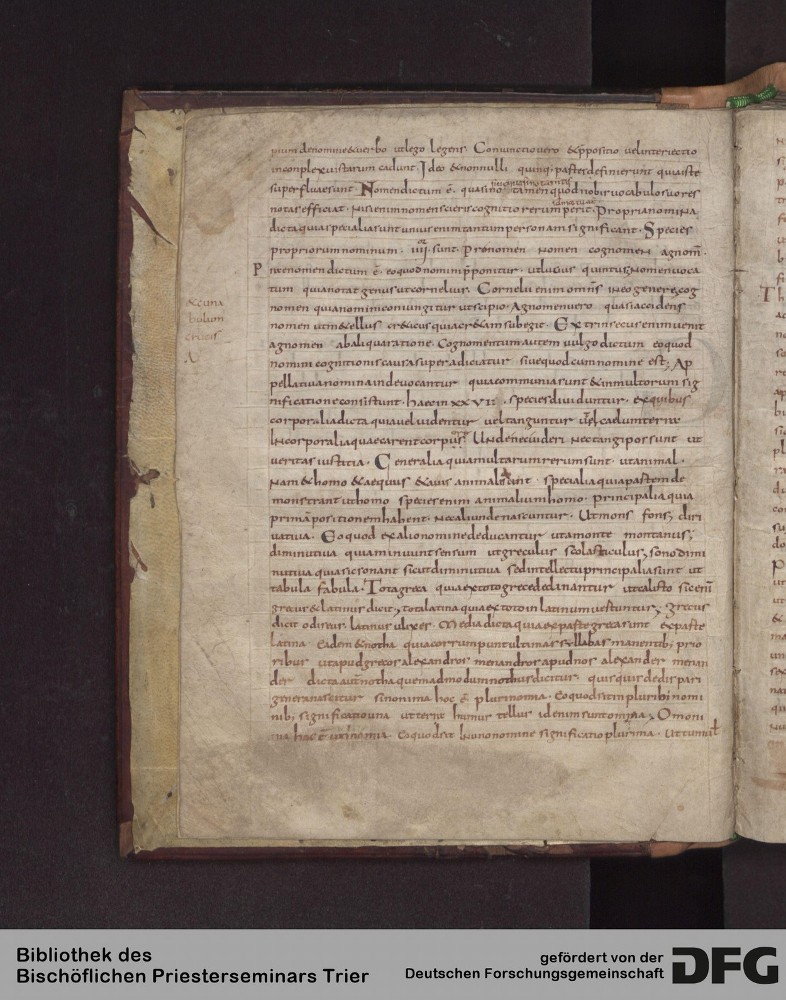 pium de nomine & uerbo ut lego legens. Coniunctio uero & p̄positio uel interiectio
in conplexu istarum cadunt. Ideo & nonnulli quinq; partes definierunt quia iste
superfluae sunt. Nomen dictum ē. quasi no tamen quod nobis uocabulo suo res
notas efficiat. Nisi enim nomen scieris cognitio rerum perit. Propria nomina
dicta quia specialia sunt unius enim tantum personam significant. Species
propriorum nominum. iiii sunt. Pronomen nomen cognomen agnom̄.
Praenomen dictum ē. eo quod nomini p̄ponitur. ut lucius quintus; Nomen uoca
tum quia notat genus ut cornelius. Cornelii enim omn̄s in eo genere; cog
nomen quia nomini coniungitur ut scipio. Agnomen uero quasi accidens
nomen ut m&ellus cr&icus quia cr&am subegit. Extrinsecus enim uenit
agnomen ab aliqua ratione. Cognomentum autem uulgo dictum eo quod
nomini cognitionis causa superadiciatur siue quod cum nomine est; Ap
pellatiua nomina inde uocantur quia communia sunt & in multorum sig
nificatione consistunt. haec in xxvii. species diuiduntur. ex quibus
corporalia dicta quia uel uidentur uel tanguntur uel cadunt
Incorporalia quae carent corpus Unde nec uideri nec tangi possunt ut
ueritas iustitia. Generalia quia multarum rerum sunt. ut animal.
Nam & homo & aequus & auis animalia sunt. specialia quia partem de
monstrant ut homo species enim animalium homo. principalia quia
prima positionem habent. nec aliunde nascuntur. Ut mons fons; diri
uatiua. Eo quod ex alio nomine deducantur ut a monte montanus;
diminutiua quia minuunt sensum ut greculus scolasticulus; sono dimi
nutiua quia sic sonant sicut diminutiua sed intellectu principalia sunt ut
tabula fabula. Tota greca quia ex toto grece declinantur ut calisto sic enī
grecus & latinus dicit; tota latina quia ex toto in latinum uertuntur; grecus
dicit odiseus. latinus ulixes. Media dicta quia ex parte greca sunt ex parte
latina eadem & notha quia corrumpunt ultimas syllabas manentib; prio
ribus ut apud grecos alexandros menandros apud nos alexander menan
der dicta aut̄ notha quemadmodum nothus dicitur quisquis de dispari
genere nascitur sinonima hoc ē plurinomia. Eo quod sit in pluribus nomi
nib; significatio una ut terra humus tellus idem sunt omnia; Omoni
ma hoc ē uninomia Eo quod sit in uno nomine significatio plurima. Ut tumul
& cuna
bulum
crucis
Bibliothek des
Bischöflichen Priesterseminars Trier
gefördert von der
Deutschen Forschungsgemeinschaft
DFG